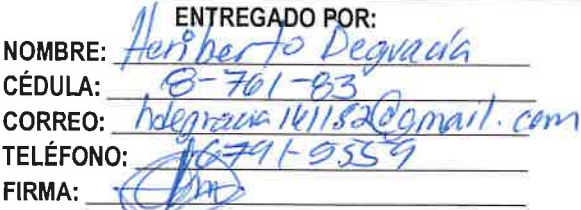 ENTREGADO POR:
NOMBRE: Heriberto Degracia
CÉDULA: 8-761-83
CORREO: hdegracia141182@gmail.com
TELÉFONO: 6791-5559
FIRMA: